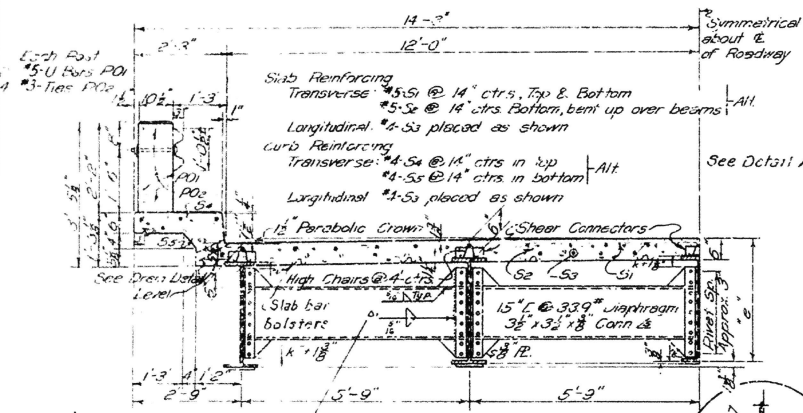 14'-3"
Symmetrical
about ℄
of Roadway
2'-3"
12'-0"
Each Post
#5-U Bars PO1
#3-Ties PO2
10½"
1'-3"
1"
Slab Reinforcing
Transverse: #5-S1 @ 14" ctrs, Top & Bottom
#5-S2 @ 14" ctrs. Bottom, bent up over beams
Alt.
Longitudinal: #4-S3 placed as shown
Curb Reinforcing
Transverse: #4-S4 @ 14" ctrs in top
#4-S5 @ 14" ctrs in bottom
Alt
Longitudinal #4-S3 placed as shown
See Detail A
PO1
PO2
S4
S5
1½" Parabolic Crown
Shear Connectors
S2
S3
S1
6"
See Drain Detail
Level
High Chairs @ 4' ctrs.
Slab bar
bolsters
Typ.
15" [ @ 33.9# Diaphragm
3½" x 3½" x
Conn
Rivet Sp.
Approx. 3"
"e"
1'-3"
4"
1'-2"
2'-9"
5'-9"
5'-9"